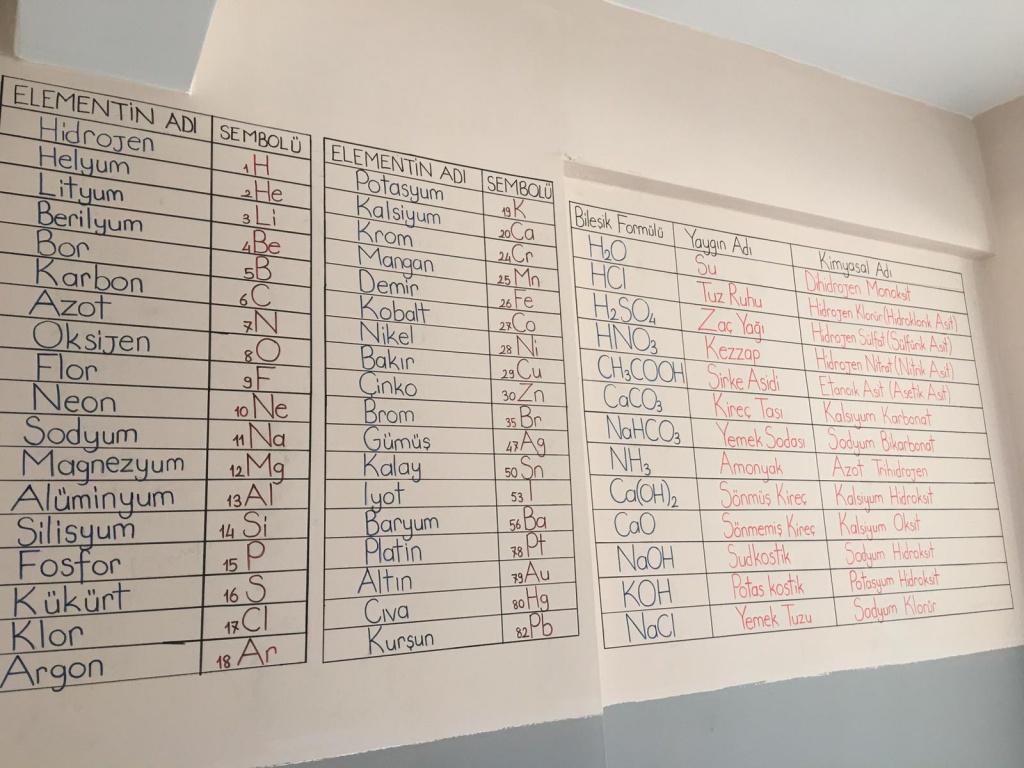 ELEMENTİN ADI SEMBOLÜ
Hidrojen 1H
Helyum 2He
Lityum 3Li
Berilyum 4Be
Bor 5B
Karbon 6C
Azot 7N
Oksijen 8O
Flor 9F
Neon 10Ne
Sodyum 11Na
Magnezyum 12Mg
Alüminyum 13Al
Silisyum 14Si
Fosfor 15P
Kükürt 16S
Klor 17Cl
Argon 18Ar
ELEMENTİN ADI SEMBOLÜ
Potasyum 19K
Kalsiyum 20Ca
Krom 24Cr
Mangan 25Mn
Demir 26Fe
Kobalt 27Co
Nikel 28Ni
Bakır 29Cu
Çinko 30Zn
Brom 35Br
Gümüş 47Ag
Kalay 50Sn
İyot 53I
Baryum 56Ba
Platin 78Pt
Altın 79Au
Cıva 80Hg
Kurşun 82Pb
Bileşik Formülü Yaygın Adı Kimyasal Adı
H2O Su Dihidrojen Monoksit
HCl Tuz Ruhu Hidrojen Klorür (Hidroklorik Asit)
H2SO4 Zaç Yağı Hidrojen Sülfat (Sülfürik Asit)
HNO3 Kezzap Hidrojen Nitrat (Nitrik Asit)
CH3COOH Sirke Asidi Etanoik Asit (Asetik Asit)
CaCO3 Kireç Taşı Kalsiyum Karbonat
NaHCO3 Yemek Sodası Sodyum Bikarbonat
NH3 Amonyak Azot Trihidrojen
Ca(OH)2 Sönmüş Kireç Kalsiyum Hidroksit
CaO Sönmemiş Kireç Kalsiyum Oksit
NaOH Sudkostik Sodyum Hidroksit
KOH Potas kostik Potasyum Hidroksit
NaCl Yemek Tuzu Sodyum Klorür